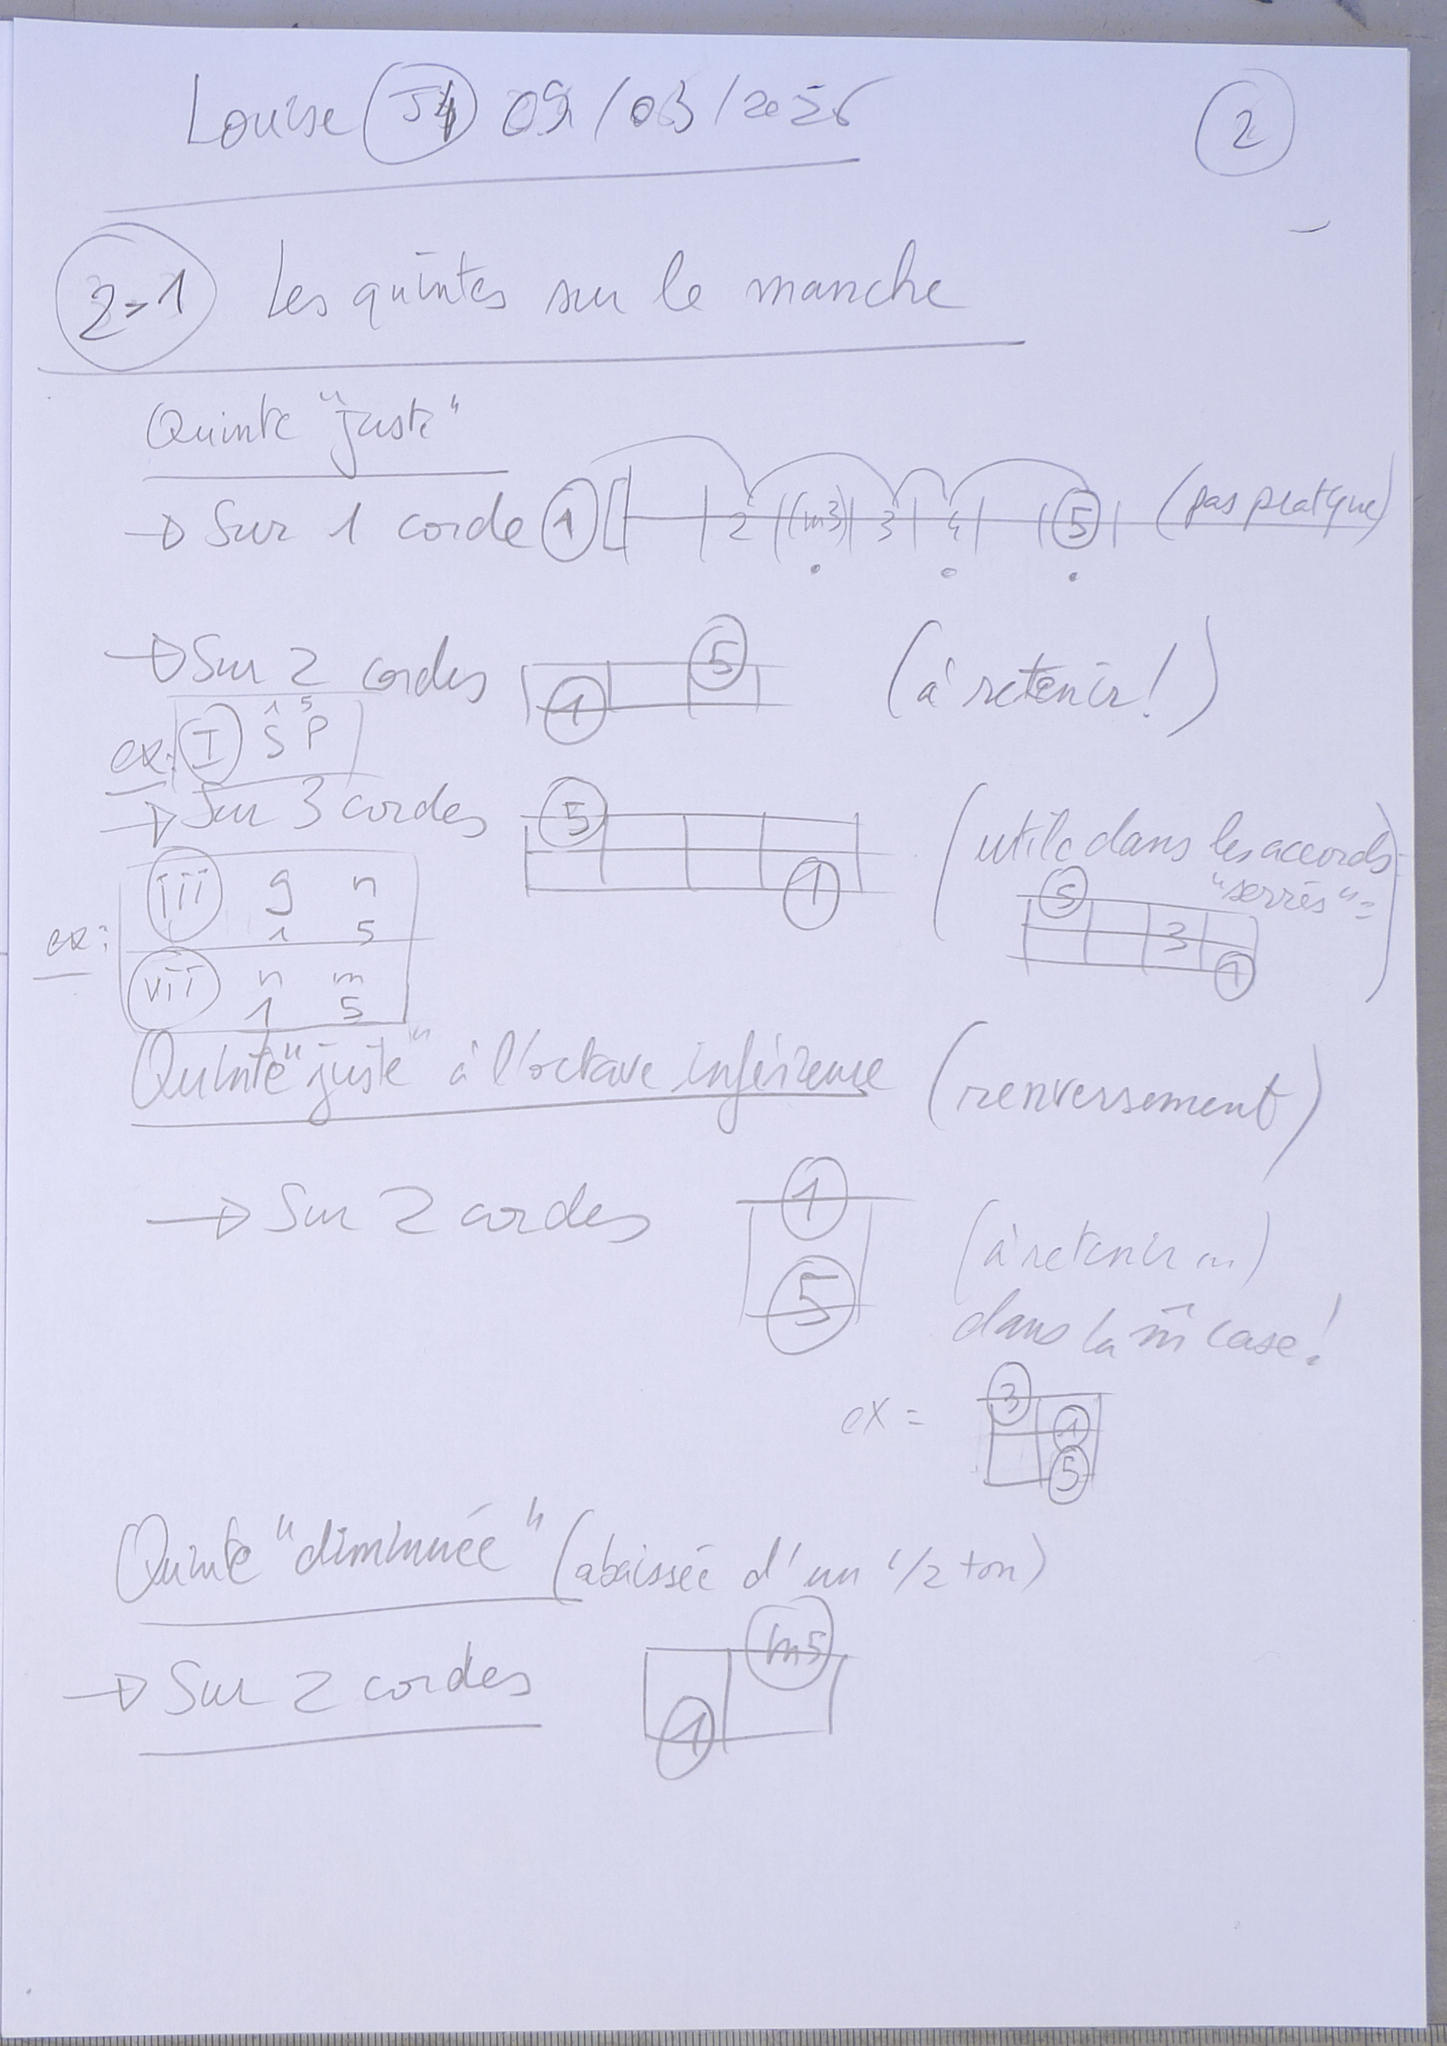 Louise J4 09/03/2026
2
2-1 Les quintes sur le manche
Quinte "juste"
→ Sur 1 corde 1 2 (m3) 3 4 5 (pas pratique)
→ Sur 2 cordes 1 5 (à retenir!)
1 5
ex: I S P
→ Sur 3 cordes 5 1 (utile dans les accords
"serrés" =
5 3 1
ex: iii g n
1 5
vii n m
1 5
Quinte "juste" à l'octave inférieure (renversement)
→ Sur 2 cordes 1 5 (à retenir)
dans la m̂ case!
ex = 3 1 5
Quinte "diminuée" (abaissée d'un 1/2 ton)
→ Sur 2 cordes 1 m5